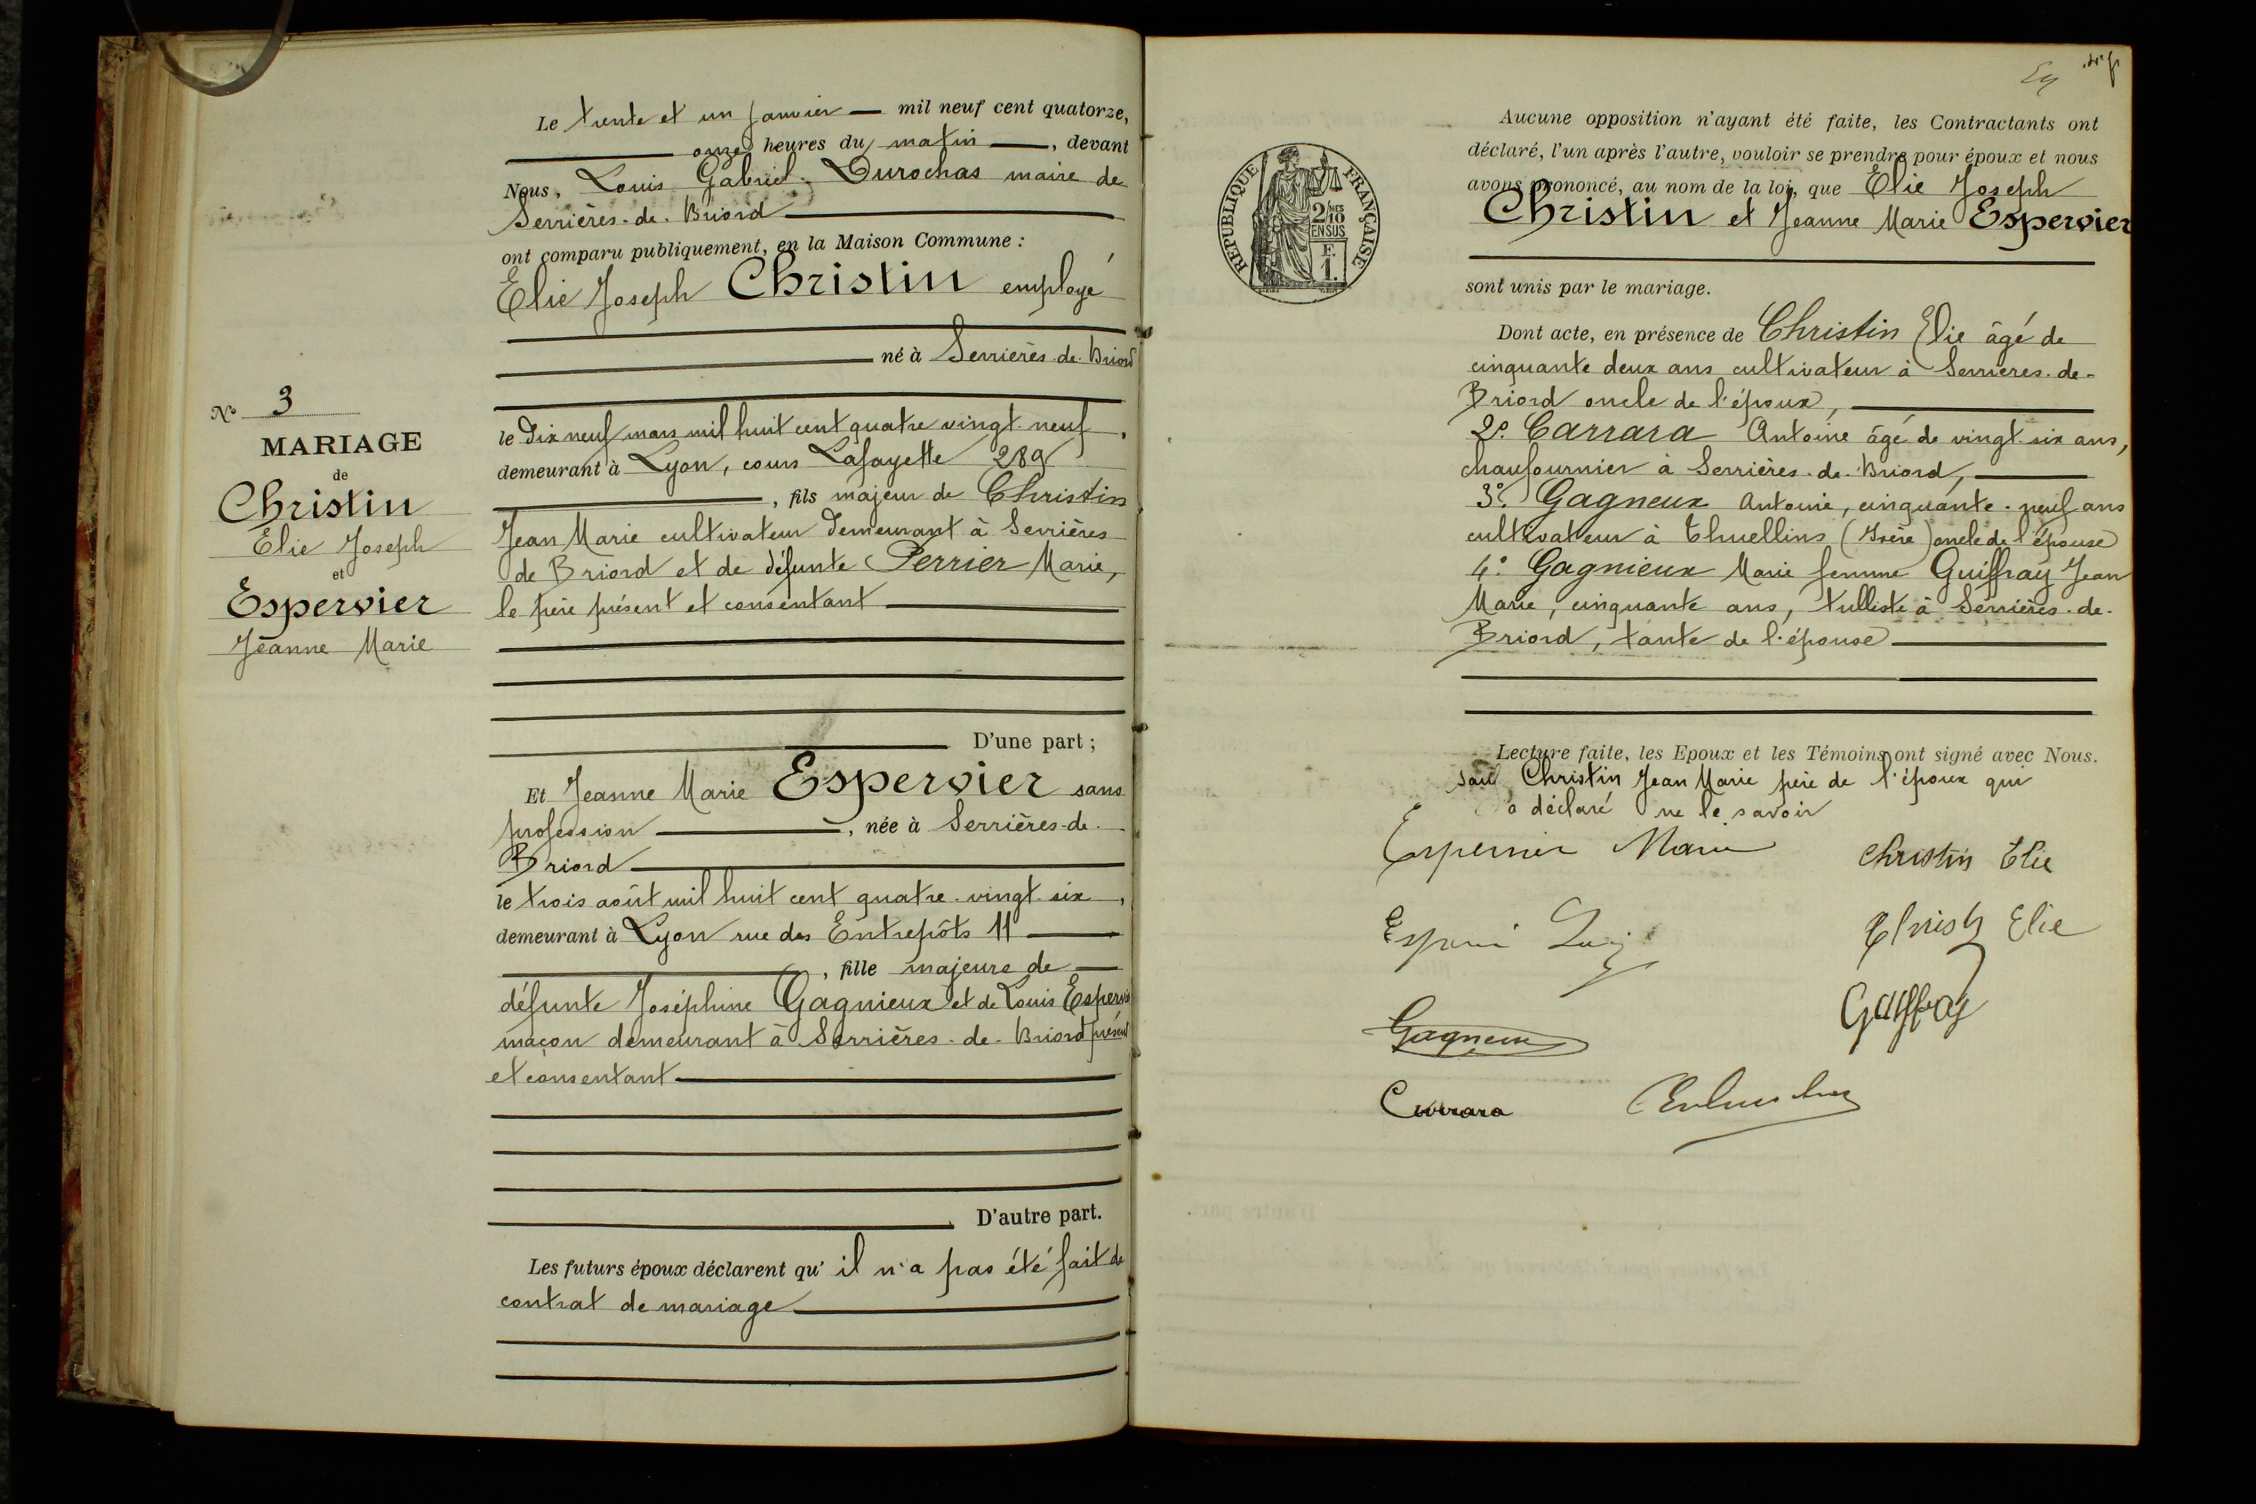 Le trente et un janvier — mil neuf cent quatorze,
onze heures du matin —, devant
Nous, Louis Gabriel Durochas maire de
Serrières-de-Briord
ont comparu publiquement, en la Maison Commune :
Elie Joseph Christin employé
né à Serrières-de-Briord
le dix neuf mars mil huit cent quatre vingt-neuf,
demeurant à Lyon, cours Lafayette 289
, fils majeur de Christin
Jean Marie cultivateur demeurant à Serrières
de Briord et de défunte Perrier Marie,
le père présent et consentant
D'une part ;
N° 3
MARIAGE
de
Christin
Elie Joseph
et
Espervier
Jeanne Marie
Et Jeanne Marie Espervier sans
profession —, née à Serrières-de-
Briord
le trois août mil huit cent quatre-vingt-six,
demeurant à Lyon rue des Entrepôts 11
, fille majeure de
défunte Joséphine Gagnieux et de Louis Espervier
maçon demeurant à Serrières-de-Briord présent
et consentant
D'autre part.
Les futurs époux déclarent qu' il n'a pas été fait de
contrat de mariage
RÉPUBLIQUE FRANÇAISE
2/10 MES
EN SUS
F
1.
Aucune opposition n'ayant été faite, les Contractants ont
déclaré, l'un après l'autre, vouloir se prendre pour époux et nous
avons prononcé, au nom de la loi, que Elie Joseph
Christin et Jeanne Marie Espervier
sont unis par le mariage.
Dont acte, en présence de Christin Elie âgé de
cinquante deux ans cultivateur à Serrières-de-
Briord oncle de l'époux,
2° Carrara Antoine âgé de vingt-six ans,
chaufournier à Serrières-de-Briord,
3° Gagneux Antoine, cinquante-neuf ans
cultivateur à Thuellins (Isère) oncle de l'épouse
4° Gagnieux Marie femme Guiffray Jean
Marie, cinquante ans, tulliste à Serrières-de-
Briord, tante de l'épouse
Lecture faite, les Epoux et les Témoins ont signé avec Nous.
sauf Christin Jean Marie père de l'époux qui
a déclaré ne le savoir
Espervier Marie
Christin Elie
Elie
Gagneux
Guiffray
Carrara